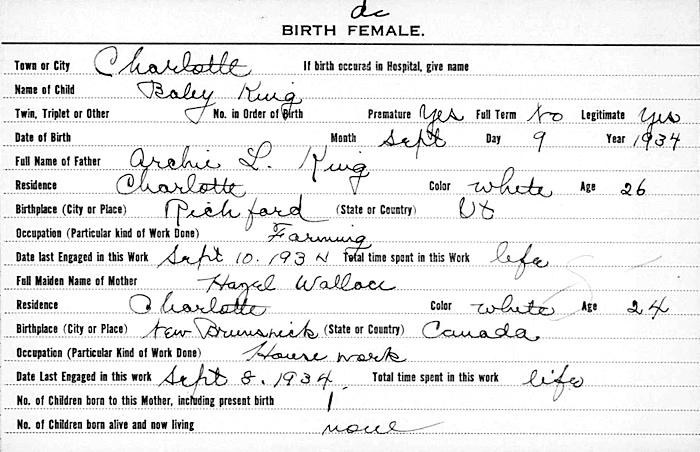 dc
BIRTH FEMALE.
Town or City Charlotte If birth occured in Hospital, give name
Name of Child Baby King
Twin, Triplet or Other No. in Order of Birth Premature Yes Full Term No Legitimate Yes
Date of Birth Month Sept Day 9 Year 1934
Full Name of Father Archie L. King
Residence Charlotte Color white Age 26
Birthplace (City or Place) Richford (State or Country) Vt
Occupation (Particular kind of Work Done) Farming
Date last Engaged in this Work Sept 10. 1934 Total time spent in this Work life
Full Maiden Name of Mother Hazel Wallace
Residence Charlotte Color white Age 24
Birthplace (City or Place) New Brunswick (State or Country) Canada
Occupation (Particular Kind of Work Done) House work
Date Last Engaged in this work Sept 8. 1934. Total time spent in this work life
No. of Children born to this Mother, including present birth 1
No. of Children born alive and now living none